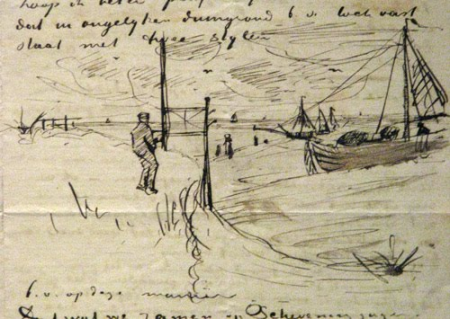 hoop ik beter
dat in ongelyken duingrond b.v. toch vast
staat met twee stylen
b.v. op deze manier
zamen op Scheveningen